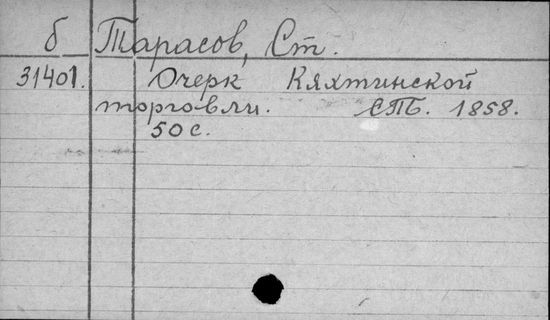 б Тарасов, Ст.
31401. Очерк Кяхтинской
торговли. СПБ. 1858.
50 с.